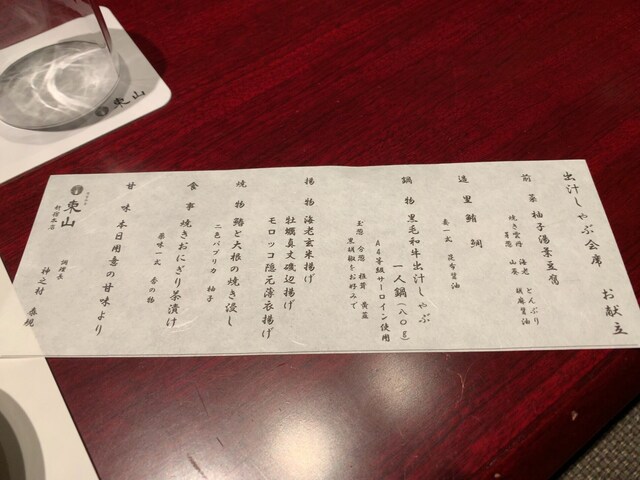 出汁しゃぶ会席 お献立
前菜 柚子湯葉豆腐
焼き雲丹 海老 とんぶり
芽葱 山葵 胡麻醤油
造里 鮪 鯛
妻一式 昆布醤油
鍋物 黒毛和牛出汁しゃぶ
一人鍋(八〇g)
A4等級サーロイン使用
玉葱 白葱 椎茸 黄韮
黒胡椒をお好みで
揚物 海老玄米揚げ
牡蠣真丈磯辺揚げ
モロッコ隠元薄衣揚げ
焼物 鰆と大根の焼き浸し
二色パプリカ 柚子
食事 焼きおにぎり茶漬け
薬味一式 香の物
甘味 本日用意の甘味より
東山
新宿本店
調理長
神之村
東山